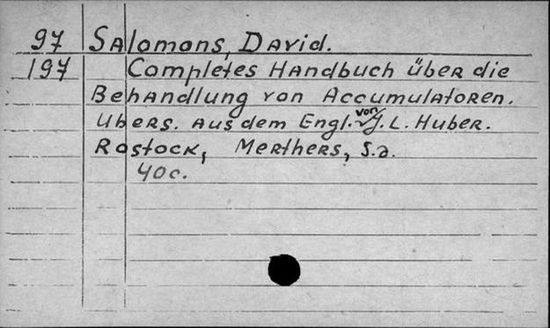 97 Salomons, David.
197 Completes Handbuch über die
Behandlung von Accumulatoren.
Ubers. aus dem Engl. von J. L. Huber.
Rostock, Merthers, s.a.
40c.